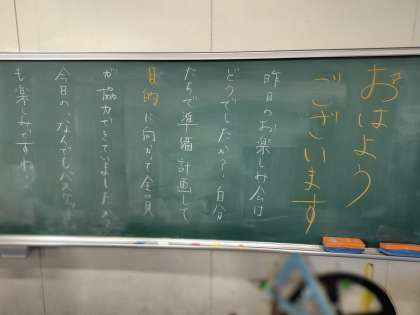 おはよう
ございます
昨日のお楽しみ会は
どうでしたか？自分
たちで準備計画して
目的に向かって全員
が協力できていましたね。
今日の、なんでもバスケット
も楽しみですね。